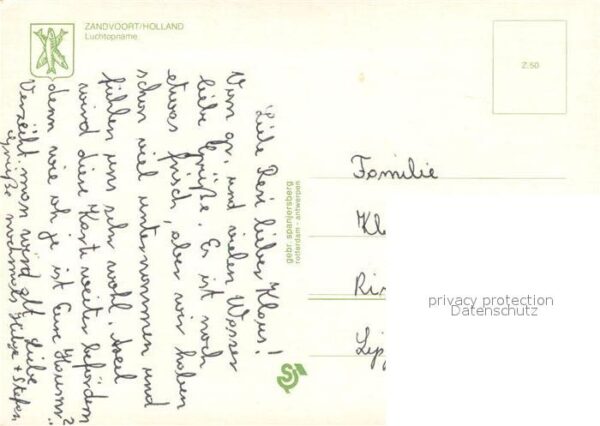 ZANDVOORT/HOLLAND
Luchtopname
Z.50
Liebe Resi, lieber Klaus!
Vom gr. und vielen Wasser
liebe Grüße. Es ist noch
etwas frisch, aber wir haben
schon viel unternommen und
fühlen uns sehr wohl. Weil
wird diese Karte weiter befördern
denn wie oh je ist Eure Hausnr?
Verzeiht, man wird alt, liebe
Grüße nochmals Helga + Stefan
gebr. spanjersberg
rotterdam - antwerpen
Familie
privacy protection
Datenschutz